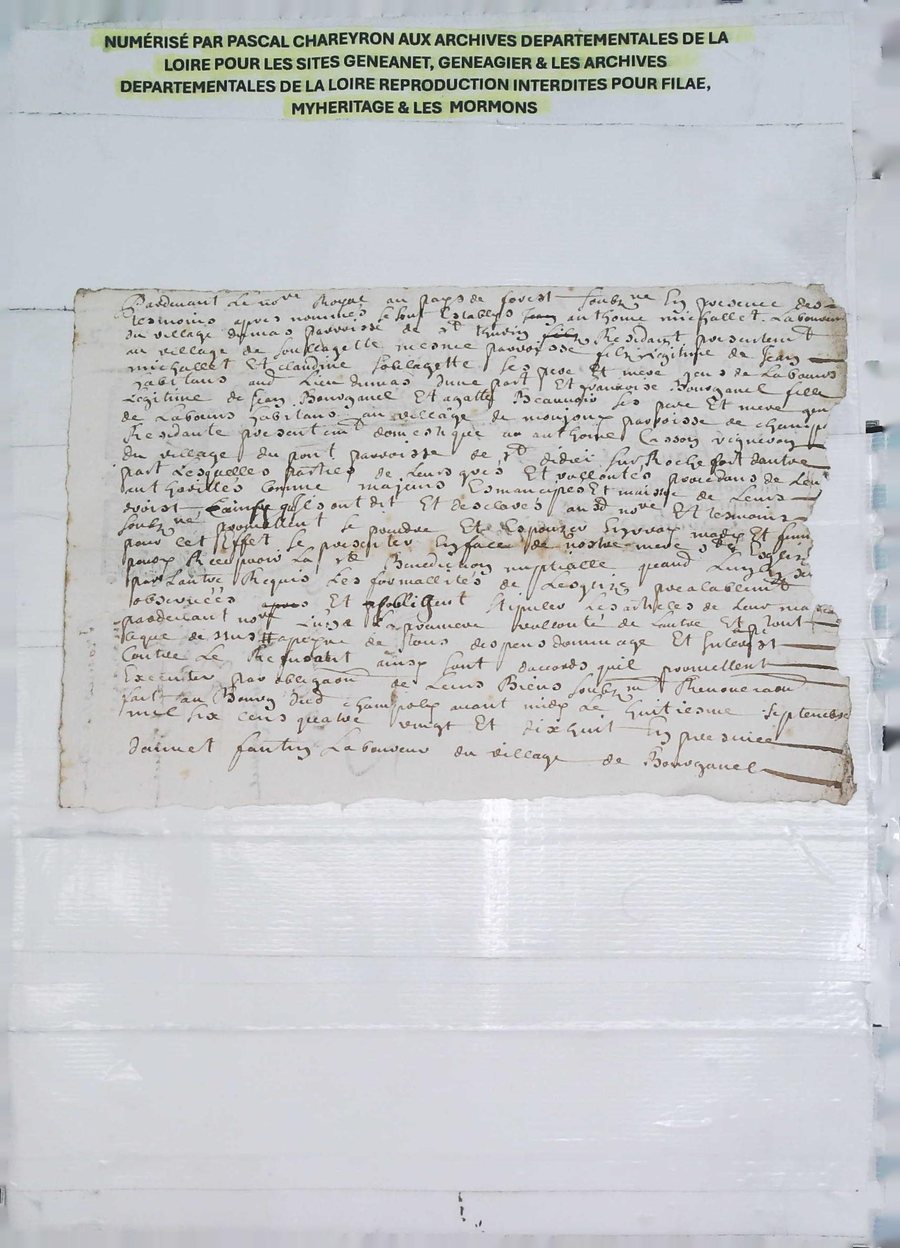 NUMÉRISÉ PAR PASCAL CHAREYRON AUX ARCHIVES DEPARTEMENTALES DE LA
LOIRE POUR LES SITES GENEANET, GENEAGIER & LES ARCHIVES
DEPARTEMENTALES DE LA LOIRE REPRODUCTION INTERDITES POUR FILAE,
MYHERITAGE & LES MORMONS
Pardevant Le no.re Royal au pays de forest soubz.ne En presence des
tesmoins apres nommes se sont Establys anthoine michallet Laboureur
du village dumas parroisse de s.t thurin Residant presentem.t
au village de soullagette mesme parroisse fils Legitime de Jean
michallet Et claudine soulagette ses pere Et mere gens de Labours
habitans aud Lieu dumas dune part Et francoise Bourganel fille
Legitime de Jean Bourganel Et agathe Beaunoir ses pere Et mere gens
de Labours habitans au village de parroisse de champ
Residante presentem.t domestique a anthoine Cosson vigneron
du village du pont parroisse de s.t didier sur Rochefort dautre
part Lesquelles parties de Leurs grés Et vollontés procedans de Leurs
droist ainsy quils ont dit Et desclaré aud no.re Et tesmoins
soubz.ne promettent se prendre Et Espouzer En vray mary Et femme
pour cet Effet se presenter En face de nostre mere s.te Esglise
pour Recepvoir La Benediction nuptialle quand Lun
par Lautre Requis Les formallités de Lesglize prealablem.t
observéés Et stipuler Les articles de Leur ma
pardevant no.re premiere vollonté de Lautre Et tout
a peyne de tous despens dommage Et Interest
Contre Le Refusant ainsy sont daccords quils promettent
Executer par obligaon de Leurs Biens soubz.m Renonceraon
fait au Bourg dud champoly avant midy Le huitiesme septembre
mil six cens quatre vingt Et dixhuit En presence
fantin Laboureur du village de Bourganel